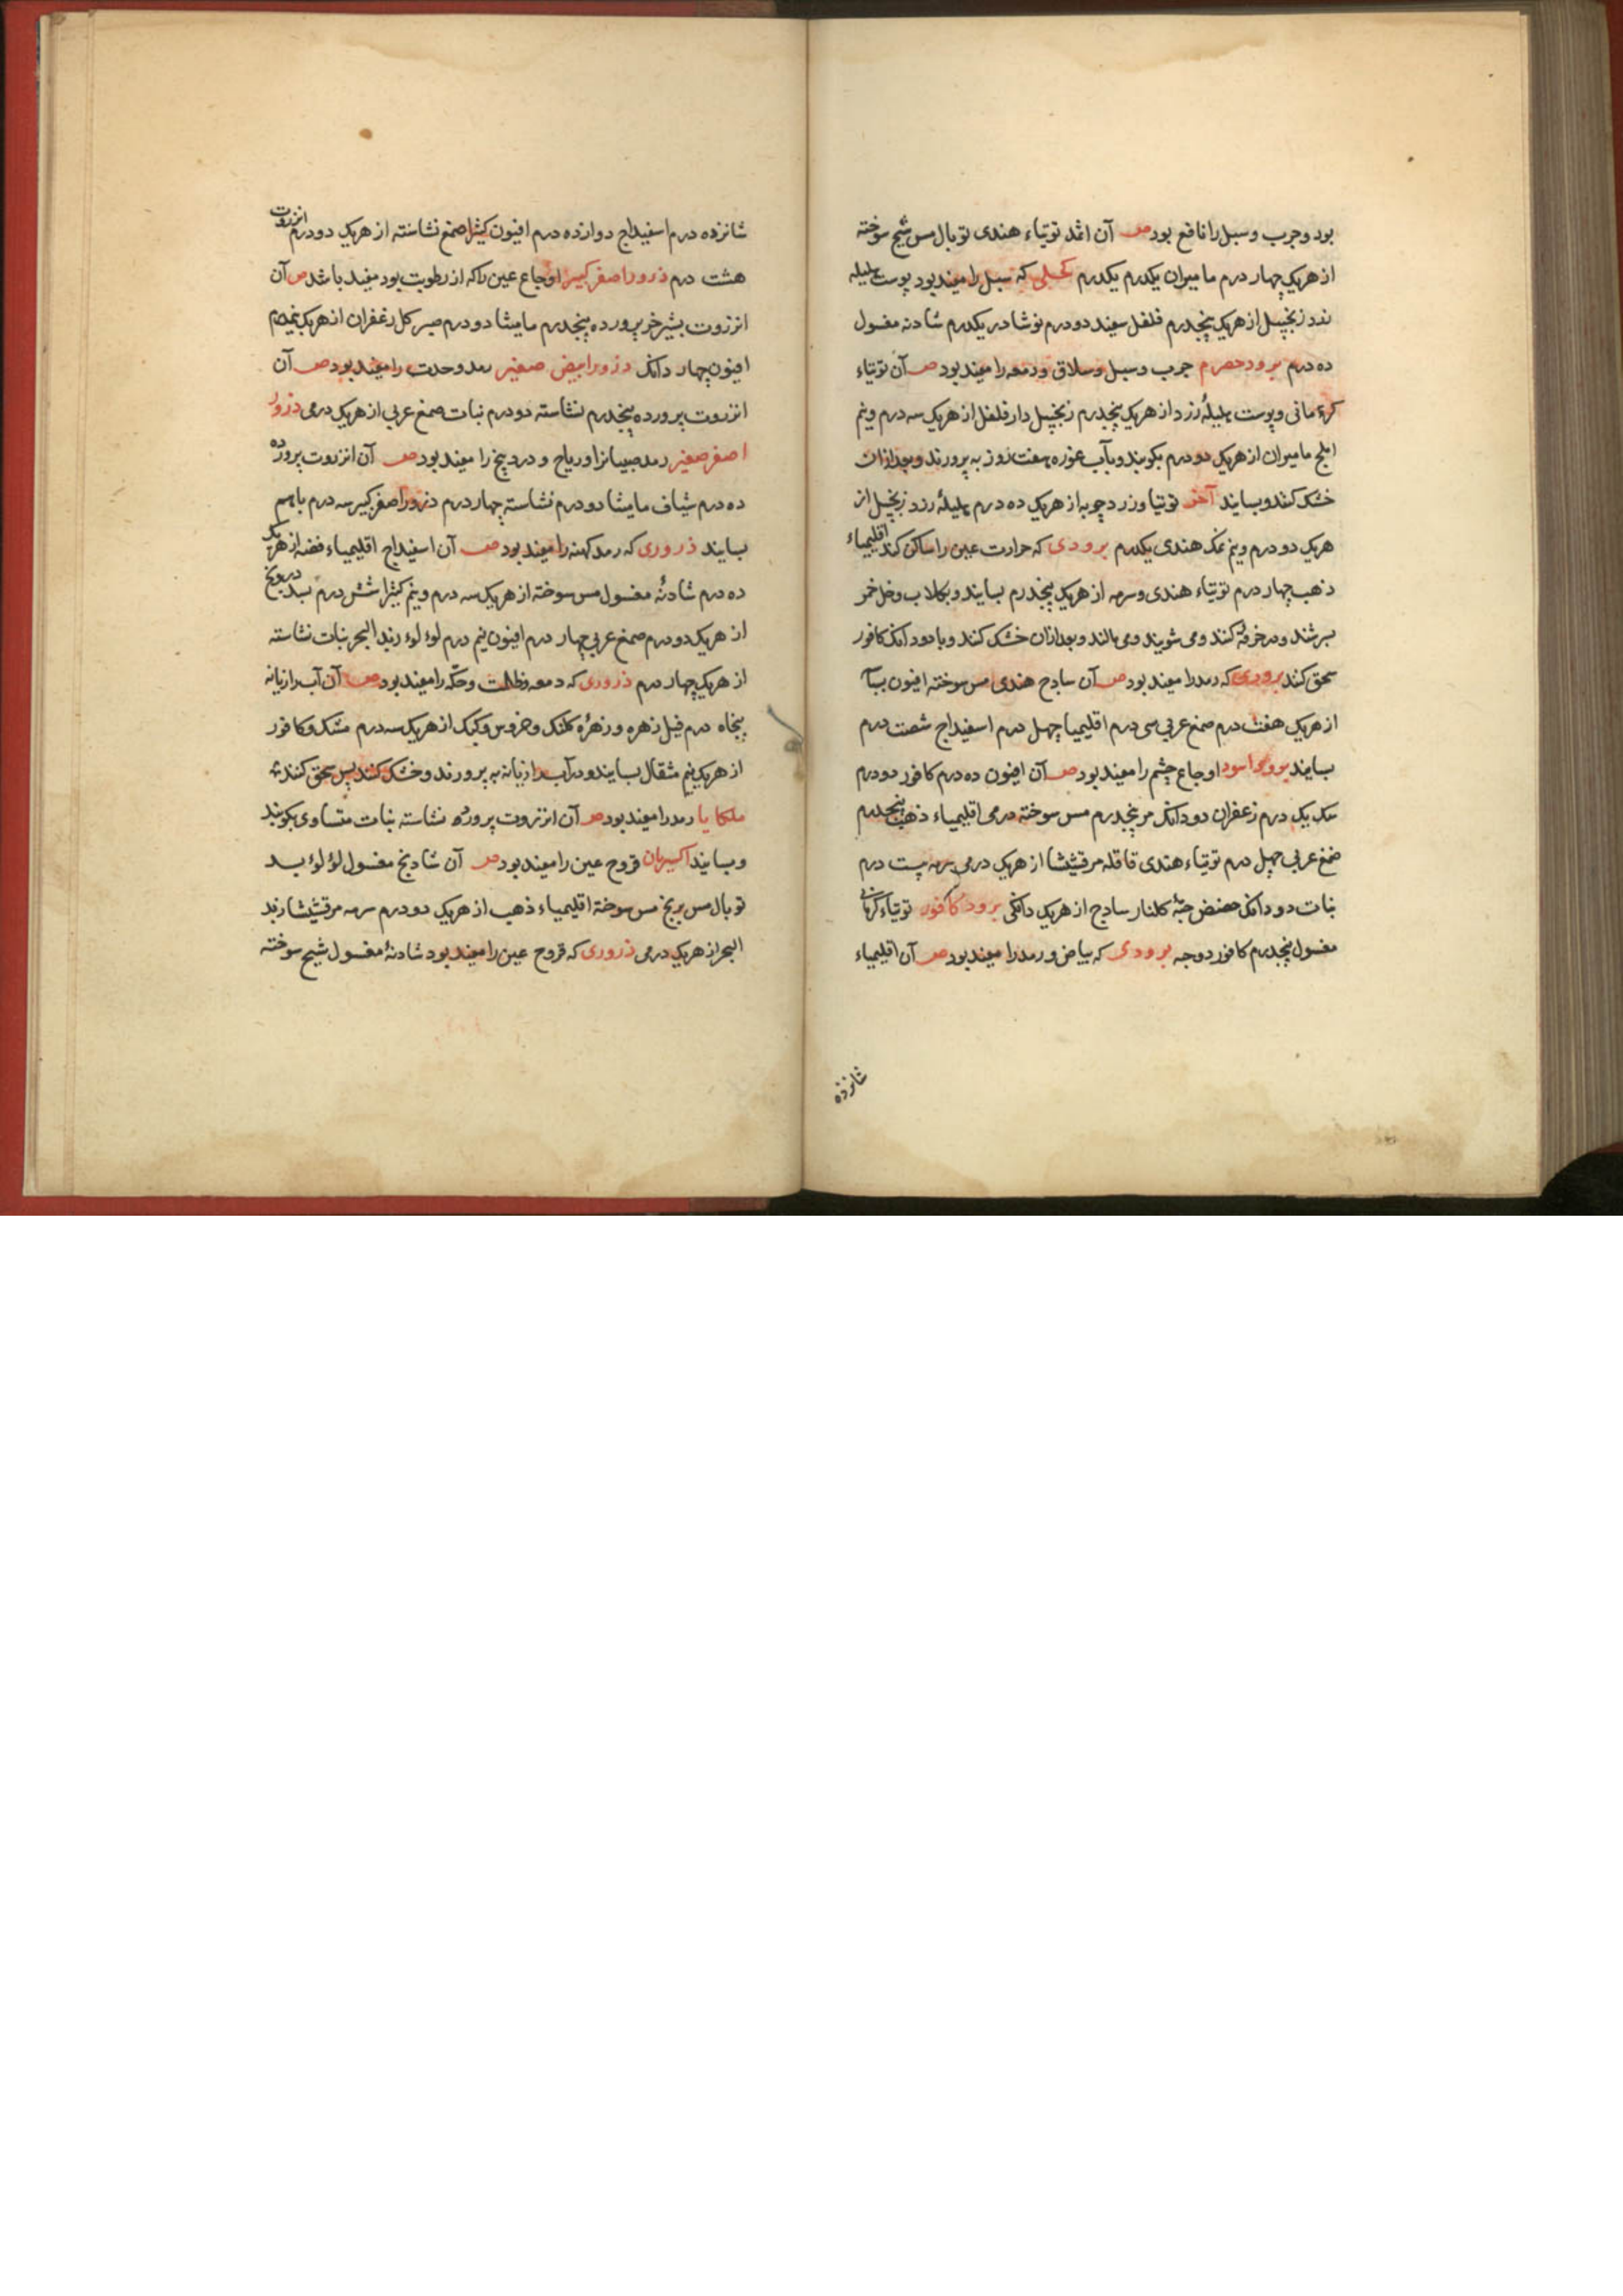 بود و جرب و سبل را نافع بود صـ آن اثمد توتیاء هندی توبال مس شیح سوخته
از هریک چهار درم مامیران یکدرم یکدرم کحلی که سبل را مفید بود پوست هلیله
زرد زنجبیل از هریک پنجدرم فلفل سفید دو درم نوشادر یکدرم شادنه مغسول
ده درم برود حصرم جرب و سبل و سلاق و دمعه را مفید بود صـ آن توتیاء
کرمانی و پوست هلیلهٔ زرد از هریک پنجدرم زنجبیل دارفلفل از هریک سه درم و نیم
املج مامیران از هریک دو درم بکوبند و بآب غوره هفت روز به پرورند و بعد ازان
خشک کنند و بسایند آخر توتیا و زردچوبه از هریک ده درم هلیلهٔ زرد زنجبیل از
هریک دو درم و نیم نمک هندی یکدرم برودی که حرارت عین را ساکن کند اقلیمیاء
ذهب چهار درم توتیاء هندی و سرمه از هریک پنجدرم بسایند و بکلاب و خل خمر
بسرشند و در خرقهٔ کنند و می شویند و می مالند و بعد ازان خشک کنند و با دو دانک کافور
سحق کنند برودی که رمد را مفید بود صـ آن سادج هندی مس سوخته افیون
از هریک هفت درم صمغ عربی سی درم اقلیمیا چهل درم اسفیداج شصت درم
بسایند برود اسود اوجاع چشم را مفید بود صـ آن افیون ده درم کافور دو درم
سک یک درم زعفران دو دانک مر پنجدرم مس سوخته درمی اقلیمیاء ذهب پنجدرم
صمغ عربی چهل درم توتیاء هندی قاقله مرقشیشا از هریک درمی سرمه بیست درم
نبات دو دانک حضض جبّه کلنار سادج از هریک دانکی برود کافور توتیاء کرمانی
مغسول پنجدرم کافور دوجه برودی که بیاض و رمد را مفید بود صـ آن اقلیمیاء
شانزده
شانزده درم اسفیداج دوازده درم افیون کثیرا صمغ نشاسته از هریک دو درم انزروت
هشت درم ذرور اصفر کبیر اوجاع عین را که از رطوبت بود مفید باشد صـ آن
انزروت بشیر خر پرورده پنجدرم مامیثا دو درم صبر کل زعفران از هریک نیمدرم
افیون چهار دانک ذرور ابیض صغیر رمد و حدت را مفید بود صـ آن
انزروت پرورده پنجدرم نشاسته دو درم نبات صمغ عربی از هریک درمی ذرور
اصفر صغیر رمد صبیانرا و ریاح و دردینج را مفید بود صـ آن انزروت پرورده
ده درم شیاف مامیثا دو درم نشاسته چهار درم ذرور اصفر کبیر سه درم باهم
بسایند ذروری که رمد کهنه را مفید بود صـ آن اسفیداج اقلیمیاء فضه از هریک
ده درم شادنهٔ مغسول مس سوخته از هریک سه درم و نیم کثیرا شش درم بسد
از هریک دو درم صمغ عربی چهار درم افیون نیم درم لوءلوء زبد البحر نبات نشاسته
از هریک چهار درم ذروری که دمعه و ظلمت و حکّه را مفید بود صـ آن آب رازیانه
پنجاه درم فیل زهره و زهرهٔ کلنک و خروس و کبک از هریک سه درم مشک و کافور
از هریک نیم مثقال بسایند و در آب رازیانه به پرورند و خشک کنند پس سحق کنند
ملکایا رمد را مفید بود صـ آن انزروت پرورده نشاسته نبات متساوی بکوبند
و بسایند اکسیریان قروح عین را مفید بود صـ آن شادنج مغسول لؤلؤ بسد
توبال مس بریخ مس سوخته اقلیمیاء ذهب از هریک دو درم سرمه مرقشیشا زبد
البحر از هریک درمی ذروری که قروح عین را مفید بود شادنهٔ مغسول شیح سوخته